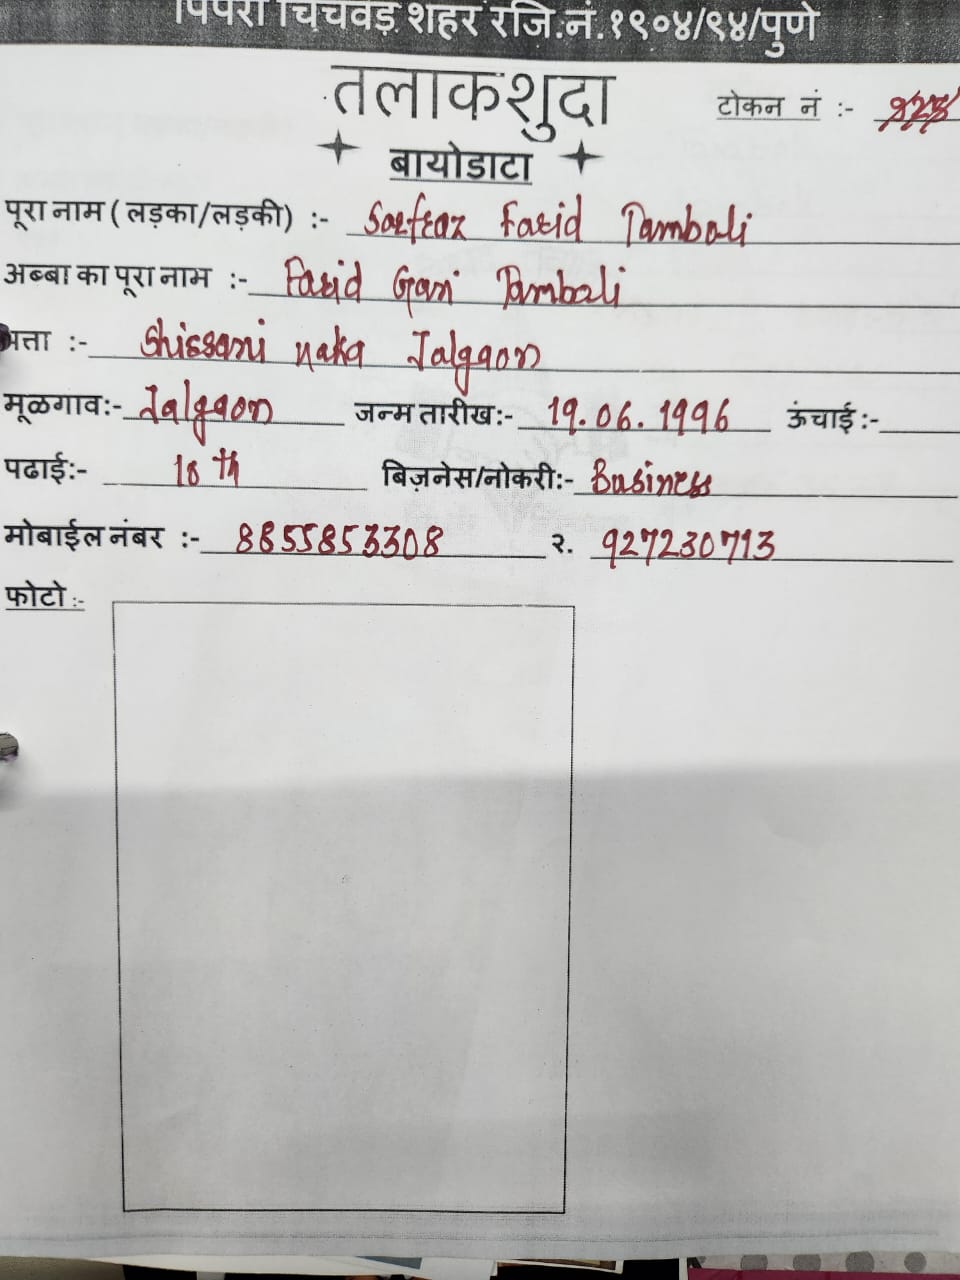 पिंपरी चिंचवड शहर रजि.नं.१९०४/९४/पुणे
तलाकशुदा
टोकन नं :-
बायोडाटा
पूरा नाम ( लड़का/लड़की) :- Sarfraz Farid Tamboli
अब्बा का पूरा नाम :- Farid Gani Tamboli
पत्ता :- Shirsani naka Jalgaon
मूळगाव:- Jalgaon जन्म तारीख:- 19.06.1996 ऊंचाई :-
पढाई:- 10 th बिज़नेस/नोकरी:- Business
मोबाईल नंबर :- 8855853308 २. 927230713
फोटो :-